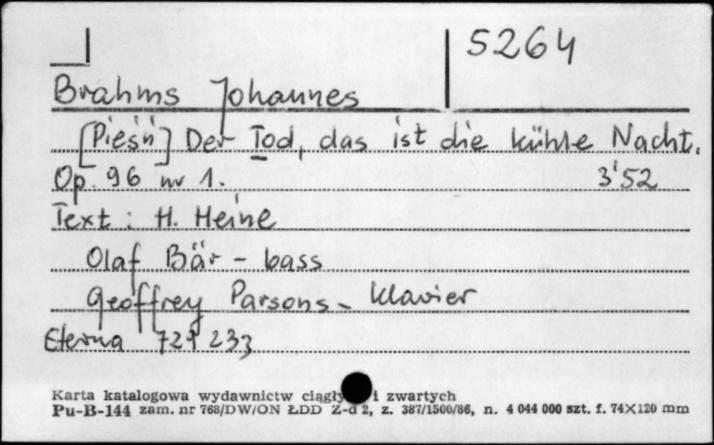 5264
Brahms Johannes
[Pieśń] Der Tod, das ist die kühle Nacht.
Op. 96 nr 1. 3'52
Text : H. Heine
Olaf Bär - bass
Geoffrey Parsons - Klavier
Eterna 729 233
Karta katalogowa wydawnictw i zwartych
Pu-B-144 zam. nr 768/DW/ON ŁDD Z-d 2, z. 387/1500/86, n. 4 044 000 szt. f. 74×120 mm